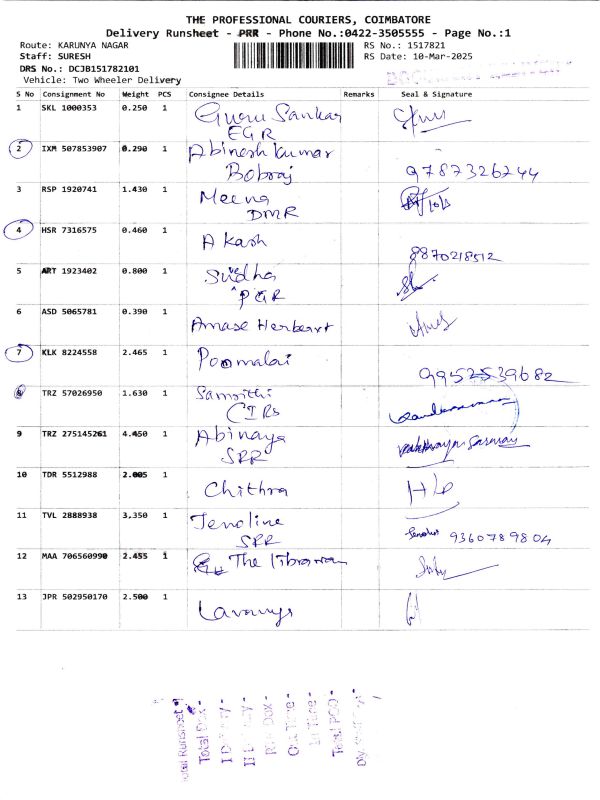 THE PROFESSIONAL COURIERS, COIMBATORE
Delivery Runsheet - PRR - Phone No.:0422-3505555 - Page No.:1
Route: KARUNYA NAGAR RS No.: 1517821
Staff: SURESH RS Date: 10-Mar-2025
DRS No.: DCJB151782101
Vehicle: Two Wheeler Delivery
S No Consignment No Weight PCS Consignee Details Remarks Seal & Signature
1 SKL 1000353 0.250 1 Guru Sankar
EGR
2 IXM 507853907 0.290 1 Abinesh Kumar
Bobraj 9787326244
3 RSP 1920741 1.430 1 Meena
DMR
4 HSR 7316575 0.460 1 Akash
8870218512
5 ART 1923402 0.800 1 Sudha
PGR
6 ASD 5065781 0.390 1 Amase Herbert
7 KLK 8224558 2.465 1 Poomalai
9952539682
8 TRZ 57026950 1.630 1 Samrithi
CTRS
9 TRZ 275145261 4.450 1 Abinaya
SRR
10 TDR 5512988 2.005 1 Chithra
11 TVL 2888938 3,350 1 Jenoline
SRR 9360789804
12 MAA 706560990 2.455 1 The librarian
13 JPR 502950170 2.500 1 Lavanya
Total Runsheet -
Total Dox -
Out Time -
In Time -
Total POD -